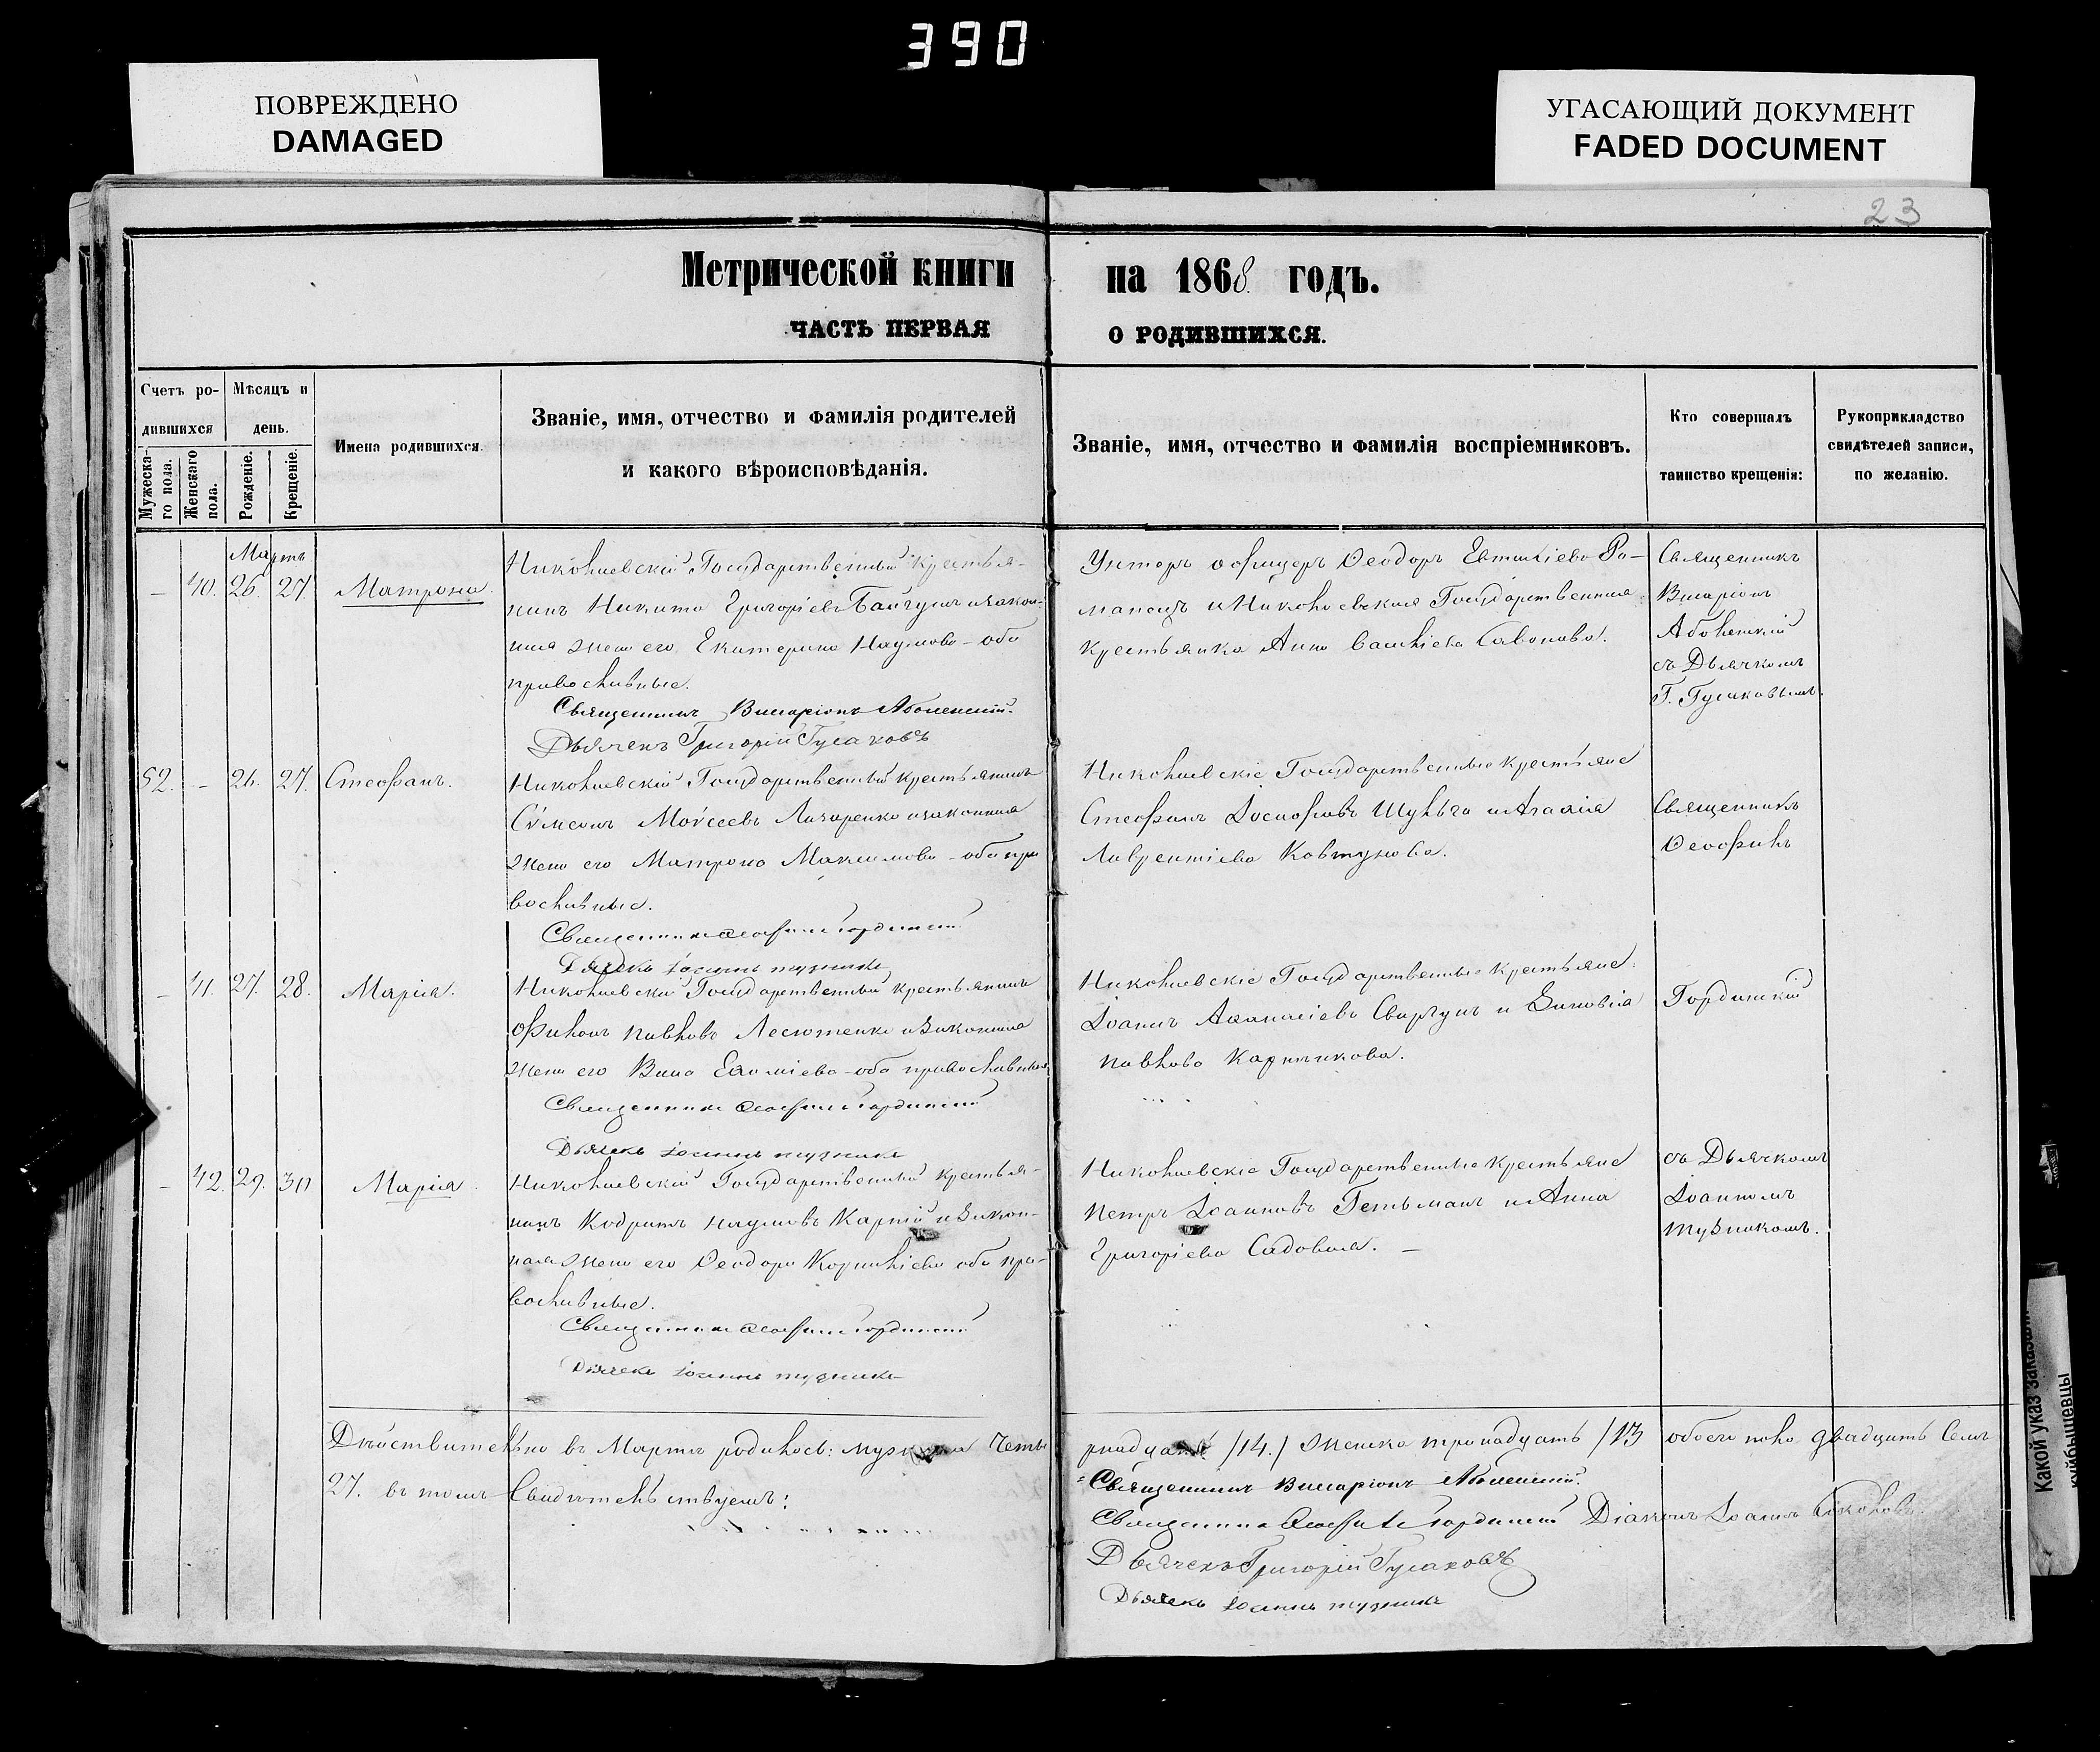 390
ПОВРЕЖДЕНО
DAMAGED
УГАСАЮЩИЙ ДОКУМЕНТ
FADED DOCUMENT
23
Метрической книги на 1868 годъ.
ЧАСТЬ ПЕРВАЯ О РОДИВШИХСЯ.
Счетъ ро-
дившихся
Мужеска-
го пола.
Женскаго
пола.
Мѣсяцъ и
день.
Рожденіе.
Крещеніе.
Имена родившихся.
Званіе, имя, отчество и фамилія родителей
и какого вѣроисповѣданія.
Званіе, имя, отчество и фамилія воспріемниковъ.
Кто совершалъ
таинство крещенія:
Рукоприкладство
свидѣтелей записи,
по желанію.
Мартъ
– 40. 26. 27. Матрона
Николаевскій Государственный крестья-
нинъ Никита Григорієвъ Байгушъ и закон-
ная жена его Екатерина Наумова – оба
православные.
Священникъ Виссаріонъ Аболенскій.
Дьячекъ Григорій Гусаковъ
Унтеръ офицеръ Ѳеодоръ Евтихіевъ Ро-
манецъ и Николаевская Государственная
крестьянка Анна Савонова.
Священникъ
Виссаріонъ
Аболенскій
съ Дьячкомъ
Г. Гусаковымъ.
52. – 26. 27. Стефанъ.
Николаевскій Государственный крестьянинъ
Сѵмеонъ Моѵсеевъ Лазаренко и законная
жена его Матрона Максимова – оба пра
вославные.
Священникъ Ѳеофилъ Гординскій
Дьячекъ Іоаннъ Тузникъ
Николаевскіе Государственные крестьяне
Стефанъ Іосифовъ Шульга и Агафія
Лаврентіева Ковтунова.
Священникъ
Ѳеофилъ
– 41. 27. 28. Марія.
Николаевскій Государственный крестьянинъ
Филонъ Павловъ Лесютенко и законная
жена его Васса Евфиміева – оба православные.
Священникъ Ѳеофилъ Гординскій
Дьячекъ Іоаннъ Тузникъ
Николаевскіе Государственные крестьяне
Іоаннъ Аѳанасіевъ Свиргунъ и Зиновія
Павлова Карпикова.
Гординскій
– 42. 29. 30 Марія.
Николаевскій Государственный крестья-
нинъ Кодратъ Наумовъ Карпій и закон-
ная жена его Ѳеодора Корниліева оба пра-
вославные.
Священникъ Ѳеофилъ Гординскій
Дьячекъ Іоаннъ Тузникъ
Николаевскіе Государственные крестьяне
Петръ Іоанновъ Гетьманъ и Анна
Григоріева Садовая. –
съ Дьячкомъ
Іоанномъ
Тузникомъ.
Дѣйствительно въ Мартѣ родилось: мужеска четы
рнадцать /14./ женска тринадцать /13 обоего пола двадцать семь
27. въ томъ свидѣтельствуемъ:
Священникъ Виссаріонъ Аболенскій.
Священникъ Ѳеофилъ Гординскій Діаконъ Іоаннъ
Дьячекъ Григорій Гусаковъ
Дьячекъ Іоаннъ Тузникъ
Какой указ
куйбышевцы